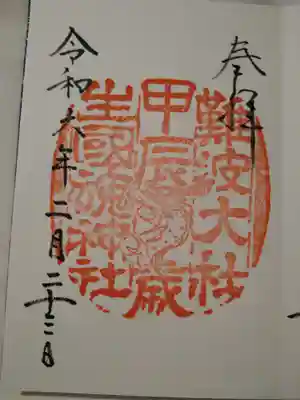 奉拝
難波大社
甲辰歳
生國魂神社
令和六年二月二十三日